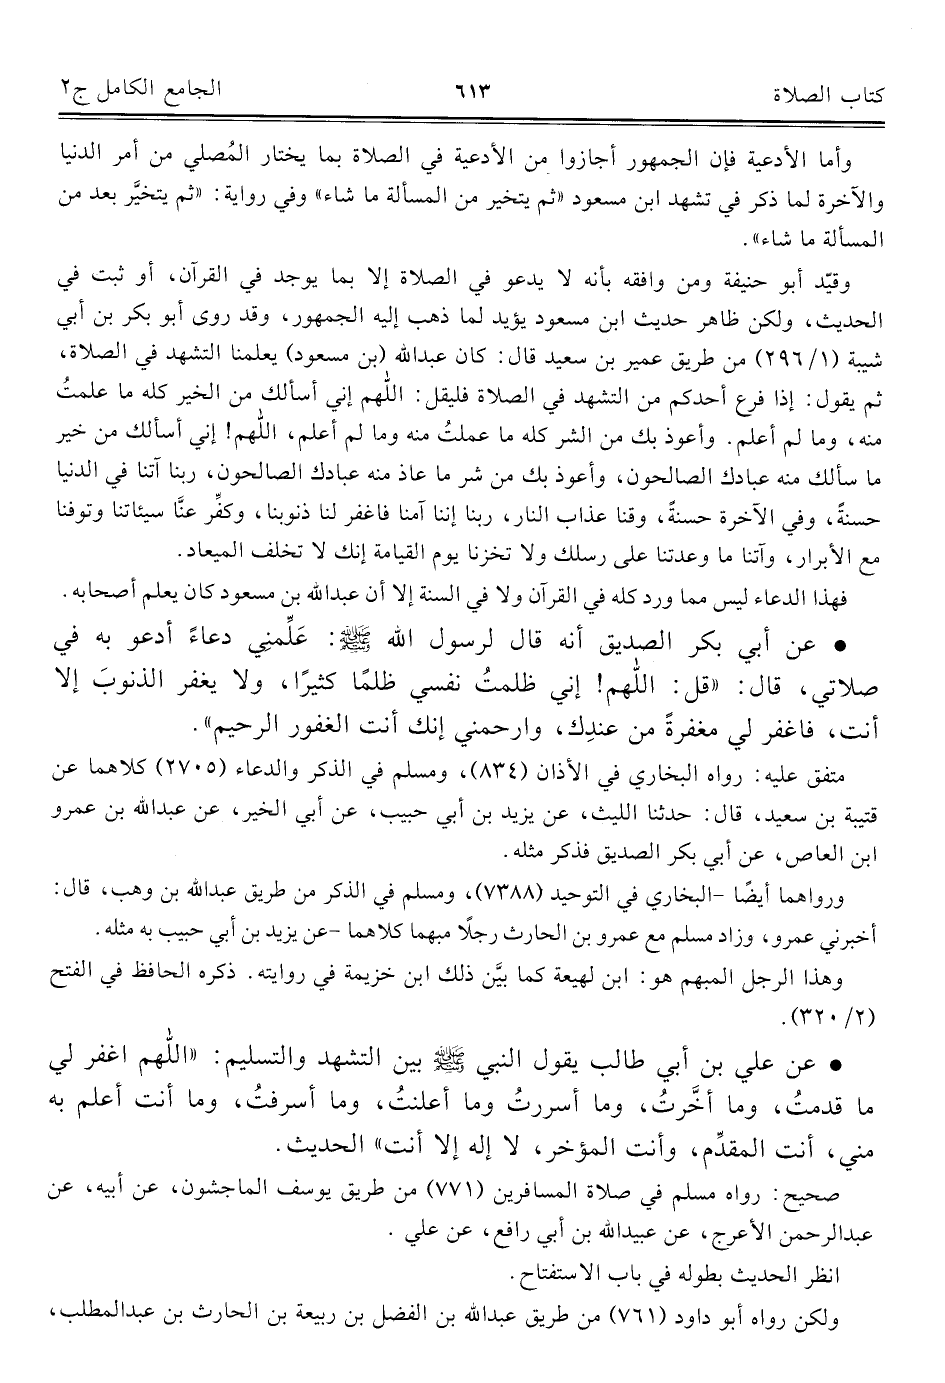 كتاب الصلاة ٦١٣ الجامع الكامل ج٢
وأما الأدعية فإن الجمهور أجازوا من الأدعية في الصلاة بما يختار المُصلي من أمر الدنيا
والآخرة لما ذكر في تشهد ابن مسعود «ثم يتخير من المسألة ما شاء» وفي رواية: «ثم يتخيَّر بعد من
المسألة ما شاء».
وقيّد أبو حنيفة ومن وافقه بأنه لا يدعو في الصلاة إلا بما يوجد في القرآن، أو ثبت في
الحديث، ولكن ظاهر حديث ابن مسعود يؤيد لما ذهب إليه الجمهور، وقد روى أبو بكر بن أبي
شيبة (١/ ٢٩٦) من طريق عمير بن سعيد قال: كان عبدالله (بن مسعود) يعلمنا التشهد في الصلاة،
ثم يقول: إذا فرع أحدكم من التشهد في الصلاة فليقل: اللّهم إني أسألك من الخير كله ما علمتُ
منه، وما لم أعلم. وأعوذ بك من الشر كله ما عملتُ منه وما لم أعلم، اللّهم! إني أسألك من خير
ما سألك منه عبادك الصالحون، وأعوذ بك من شر ما عاذ منه عبادك الصالحون، ربنا آتنا في الدنيا
حسنةً، وفي الآخرة حسنةً، وقنا عذاب النار، ربنا إننا آمنا فاغفر لنا ذنوبنا، وكفِّر عنَّا سيئاتنا وتوفنا
مع الأبرار، وآتنا ما وعدتنا على رسلك ولا تخزنا يوم القيامة إنك لا تخلف الميعاد.
فهذا الدعاء ليس مما ورد كله في القرآن ولا في السنة إلا أن عبدالله بن مسعود كان يعلم أصحابه.
● عن أبي بكر الصديق أنه قال لرسول الله ﷺ: عَلِّمنِي دعاءً أدعو به في
صلاتي، قال: «قل: اللّهم! إني ظلمتُ نفسي ظلمًا كثيرًا، ولا يغفر الذنوبَ إلا
أنت، فاغفر لي مغفرةً من عندِك، وارحمني إنك أنت الغفور الرحيم».
متفق عليه: رواه البخاري في الأذان (٨٣٤)، ومسلم في الذكر والدعاء (٢٧٠٥) كلاهما عن
قتيبة بن سعيد، قال: حدثنا الليث، عن يزيد بن أبي حبيب، عن أبي الخير، عن عبدالله بن عمرو
ابن العاص، عن أبي بكر الصديق فذكر مثله.
ورواهما أيضًا -البخاري في التوحيد (٧٣٨٨)، ومسلم في الذكر من طريق عبدالله بن وهب، قال:
أخبرني عمرو، وزاد مسلم مع عمرو بن الحارث رجلًا مبهما كلاهما -عن يزيد بن أبي حبيب به مثله.
وهذا الرجل المبهم هو: ابن لهيعة كما بيَّن ذلك ابن خزيمة في روايته. ذكره الحافظ في الفتح
(٢/ ٣٢٠).
● عن علي بن أبي طالب يقول النبي ﷺ بين التشهد والتسليم: «اللّهم اغفر لي
ما قدمتُ، وما أخَّرتُ، وما أسررتُ وما أعلنتُ، وما أسرفتُ، وما أنت أعلم به
مني، أنت المقدِّم، وأنت المؤخر، لا إله إلا أنت» الحديث.
صحيح: رواه مسلم في صلاة المسافرين (٧٧١) من طريق يوسف الماجشون، عن أبيه، عن
عبدالرحمن الأعرج، عن عبيدالله بن أبي رافع، عن علي .
انظر الحديث بطوله في باب الاستفتاح.
ولكن رواه أبو داود (٧٦١) من طريق عبدالله بن الفضل بن ربيعة بن الحارث بن عبدالمطلب،